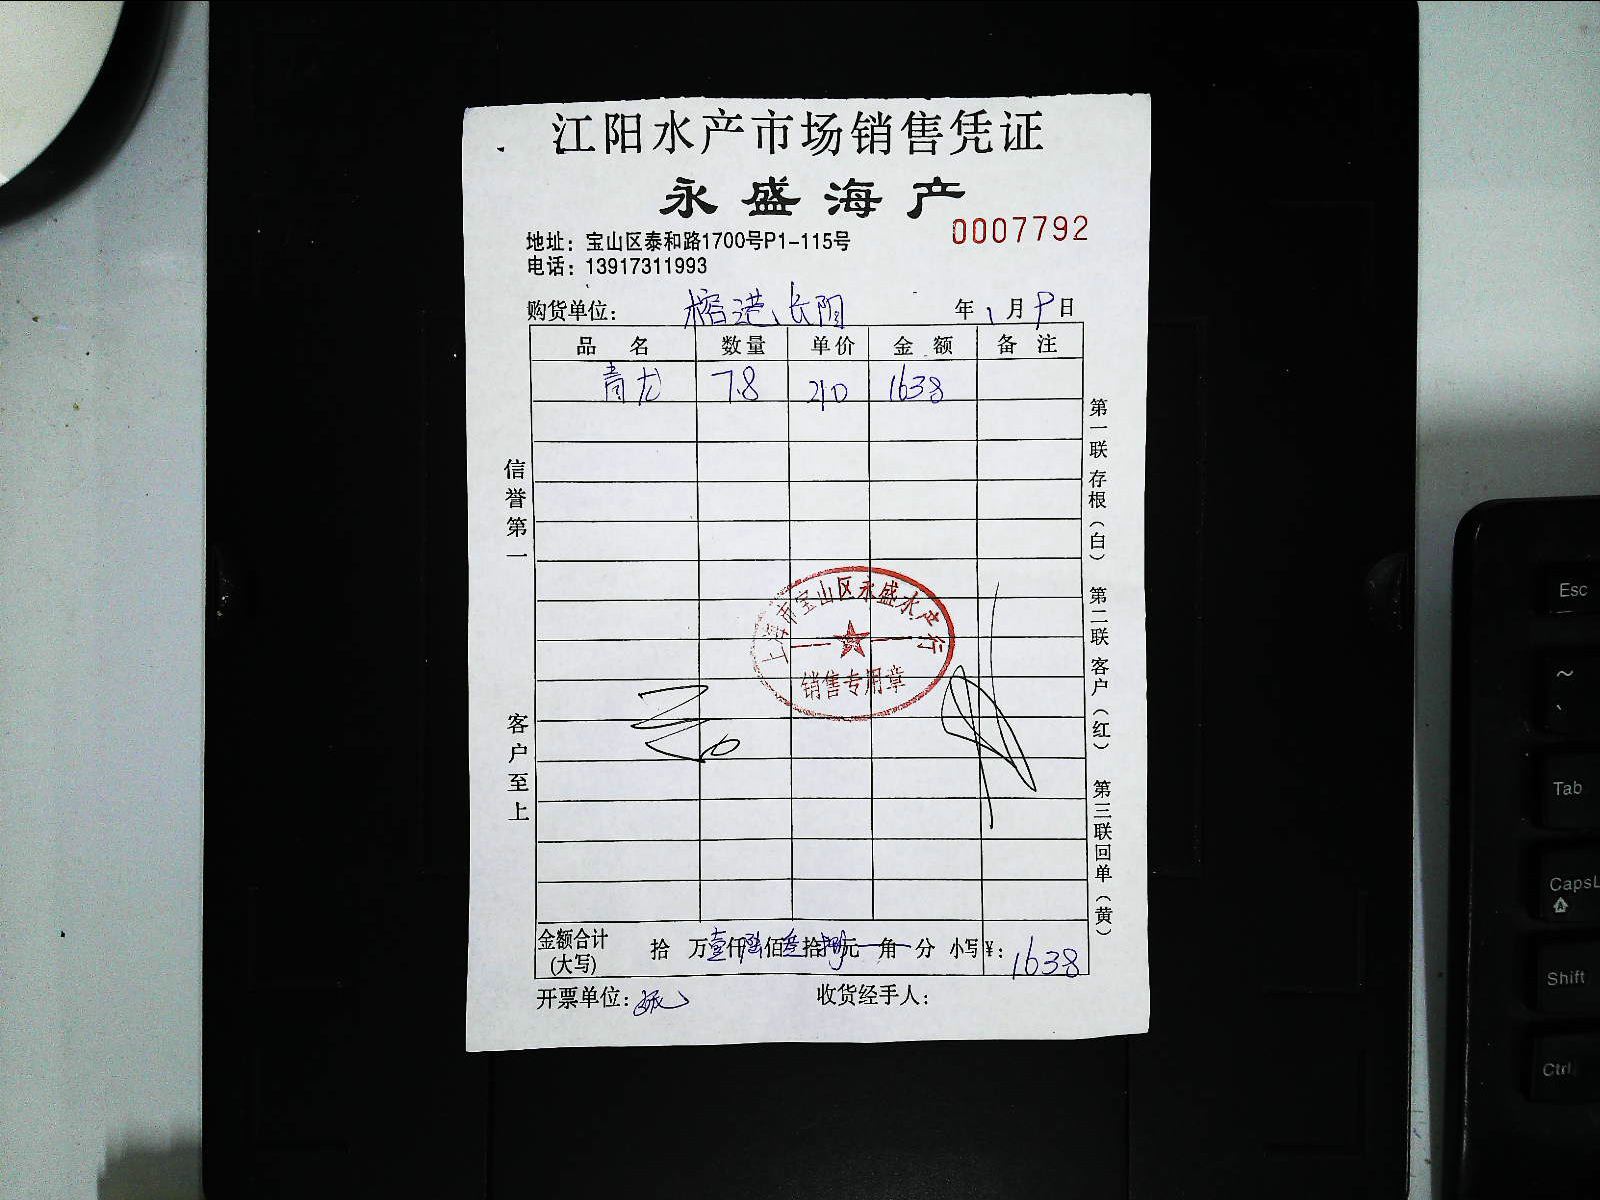 江阳水产市场销售凭证
永盛海产
0007792
地址：宝山区泰和路1700号P1-115号
电话：13917311993
购货单位： 榕港、长阳 年 1 月 9 日
品 名 数量 单价 金 额 备 注
青龙 7.8 210 1638
信誉第一
客户至上
第一联 存根（白） 第二联 客户（红） 第三联 回单（黄）
上海市宝山区永盛水产行
销售专用章
金额合计(大写) 拾 万壹仟陆佰叁拾捌元 角 分 小写¥：1638
开票单位： 收货经手人：
Esc
~
`
Tab
CapsL
Shift
Ctrl